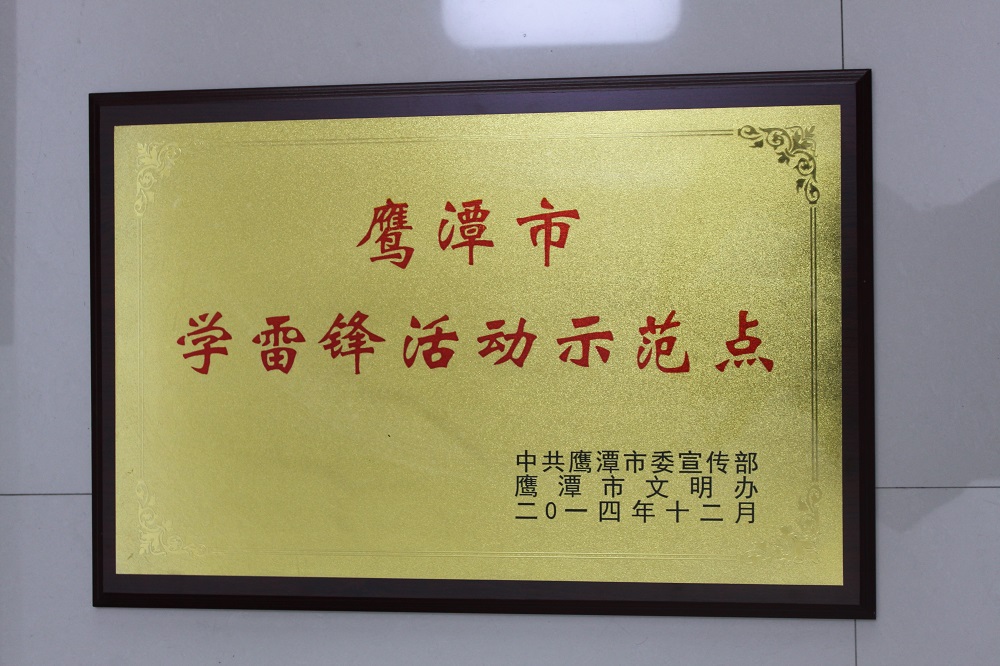 鹰潭市
学雷锋活动示范点
中共鹰潭市委宣传部
鹰潭市文明办
二0一四年十二月